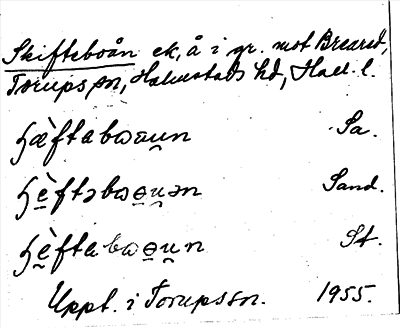 Skifteboån ek, å i gr. mot Breared,
Torups sn, Halmstads hd, Hall. l.
ɧæ̀ftabωɵu̯n Sa.
ɧè̠ftəbωɵ̠u̯ən Sand.
ɧè̠ftabωɵ̠u̯n St.
Uppt. i Torups sn. 1955.